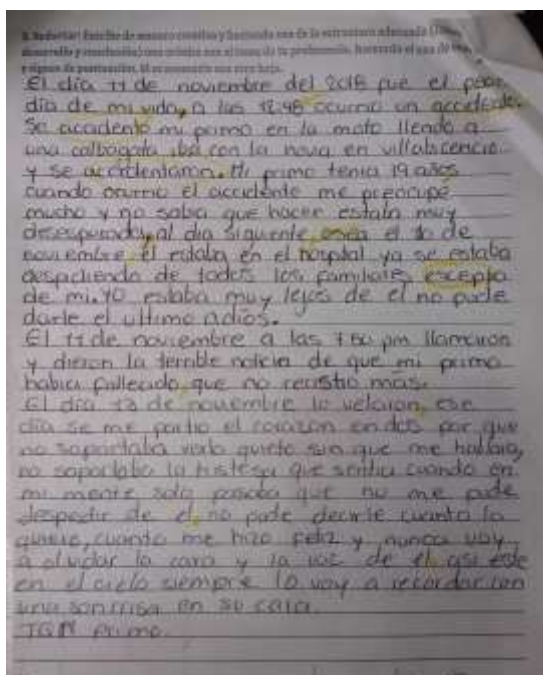 3. Redactar: Escribe de manera creativa y haciendo uso de la estructura adecuada
desarrollo y conclusión) una crónica con el tema de tu preferencia, haciendo el uso de
y signos de puntuación.
El día 11 de noviembre del 2018 fue el peor
día de mi vida, a las 12:48 ocurrio un accidente.
Se accidento mi primo en la moto llendo a
una calbogata iba con la novia en villabicencio
y se accidentaron. Mi primo tenia 19 años
cuando ocurrio el accidente me preocupé
mucho y no sabia que hacer estaba muy
desesperada, al dia siguiente osea el de
noviembre el estaba en el hospital ya se estaba
despidiendo de todos los familiares excepto
de mi. Yo estaba muy lejos de el no pude
darle el ultimo adios.
El 11 de noviembre a las pm llamaron
y dieron la terrible noticia de que mi primo
habia fallecido, que no recistio mas.
El dia 13 de noviembre lo velaron, ese
día se me partio el corazon en dos por que
no soportaba verlo quieto sin que me hablara,
no soportaba la tristesa que sentia cuando en
mi mente solo pasaba que no me pude
despedir de el, no pude decirle cuanto lo
queria, cuanto me hizo feliz y nunca voy
a olvidar la cara y la voz de el asi este
en el cielo siempre lo voy a recordar con
una sonrrisa en su cara.
TQM primo.